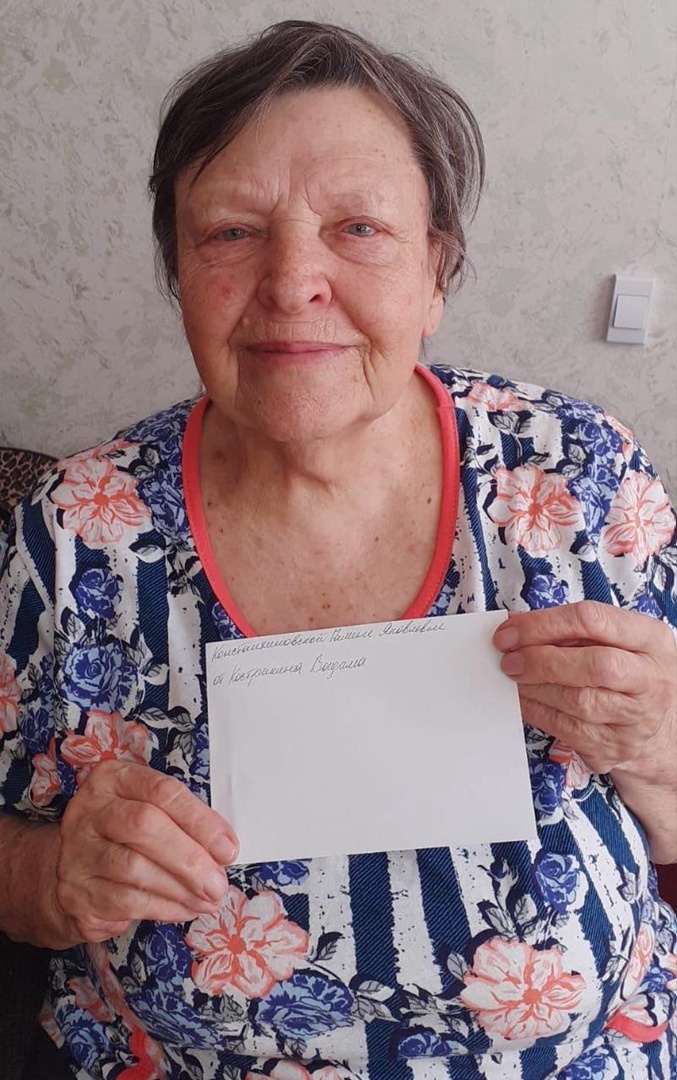 Константиновской Галине Яковлевне
от Кострикина Вадима